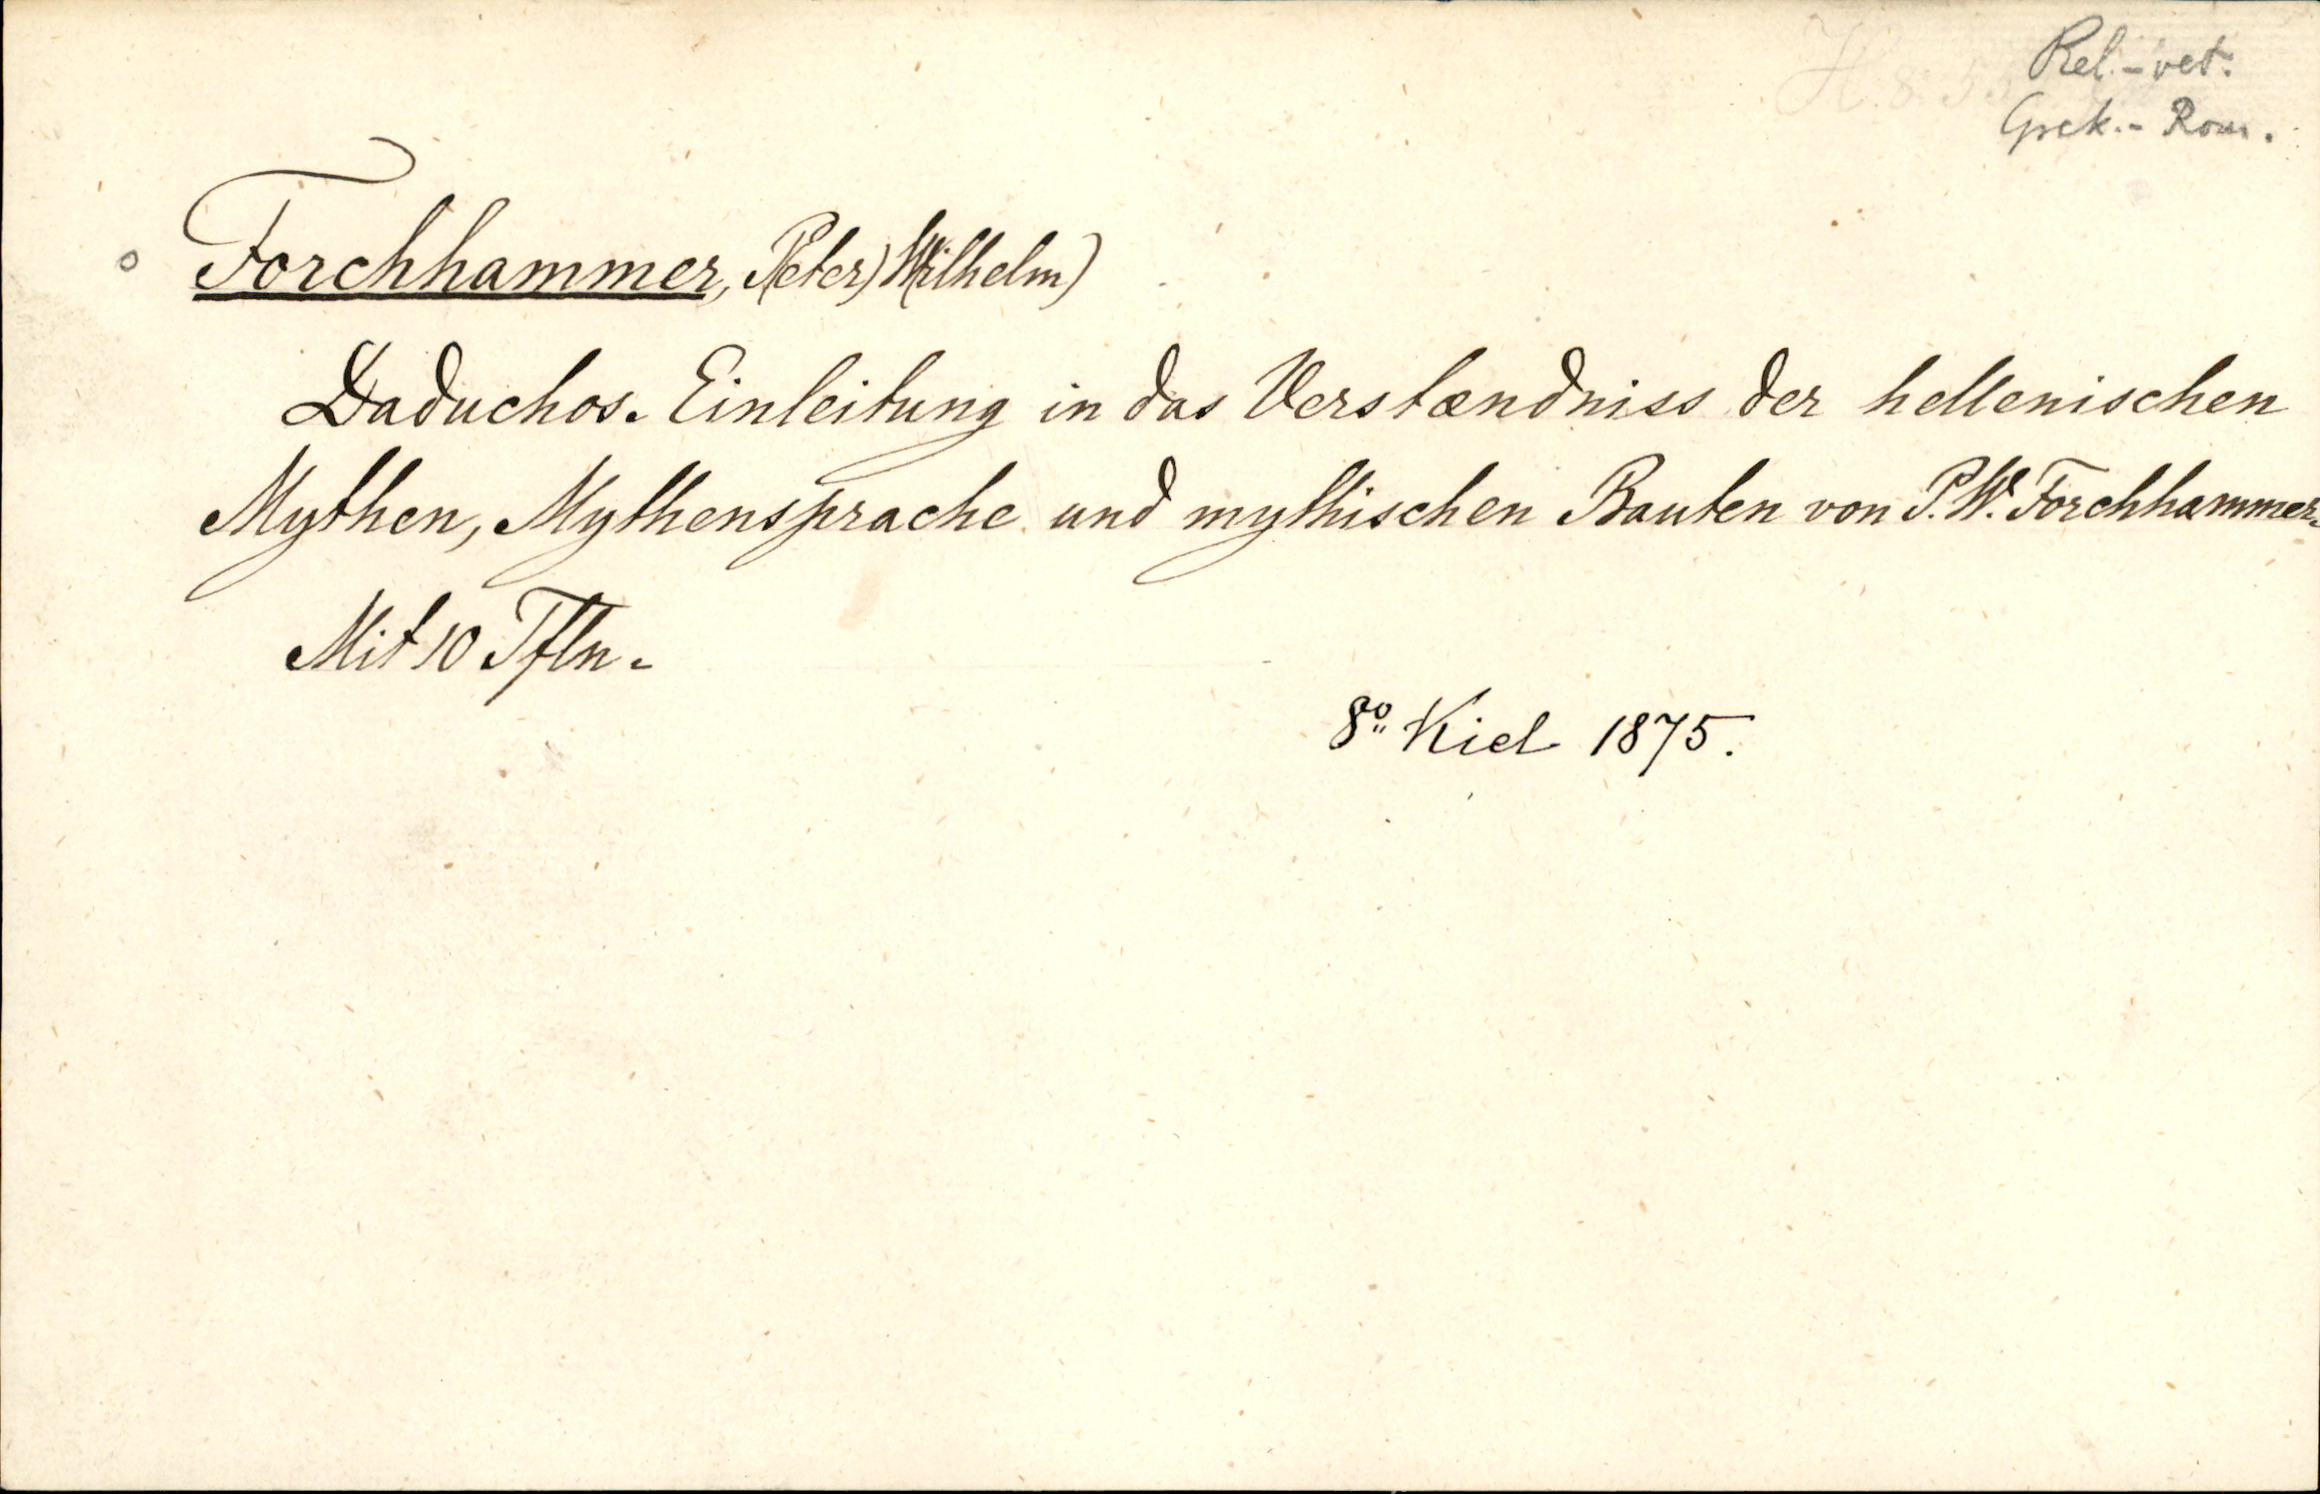 Rel.-vet.
Grek.- Rom.
Forchhammer, P(eter) W(ilhelm)
Daduchos. Einleitung in das Verstændniss der hellenischen
Mythen, Mythensprache und mythischen Bauten von P. W. Forchhammer.
Mit 10 Tfln.
8º Kiel 1875.